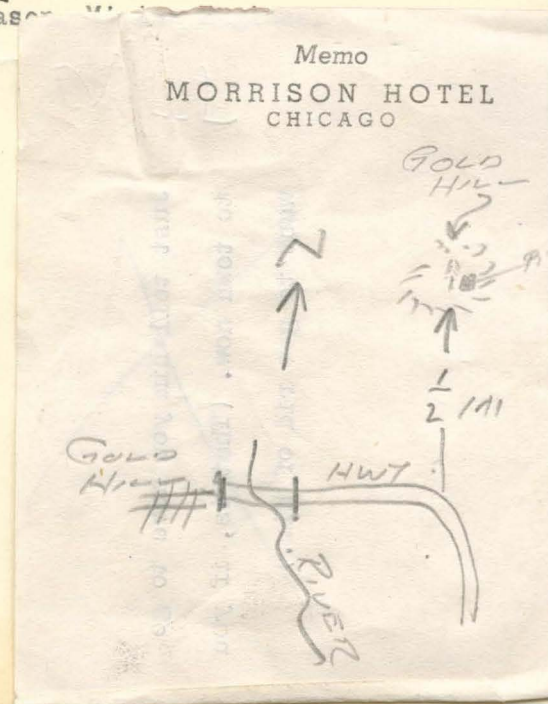 Memo
MORRISON HOTEL
CHICAGO
GOLD
HILL
N
1/2 MI
GOLD
HILL
HWY
RIVER